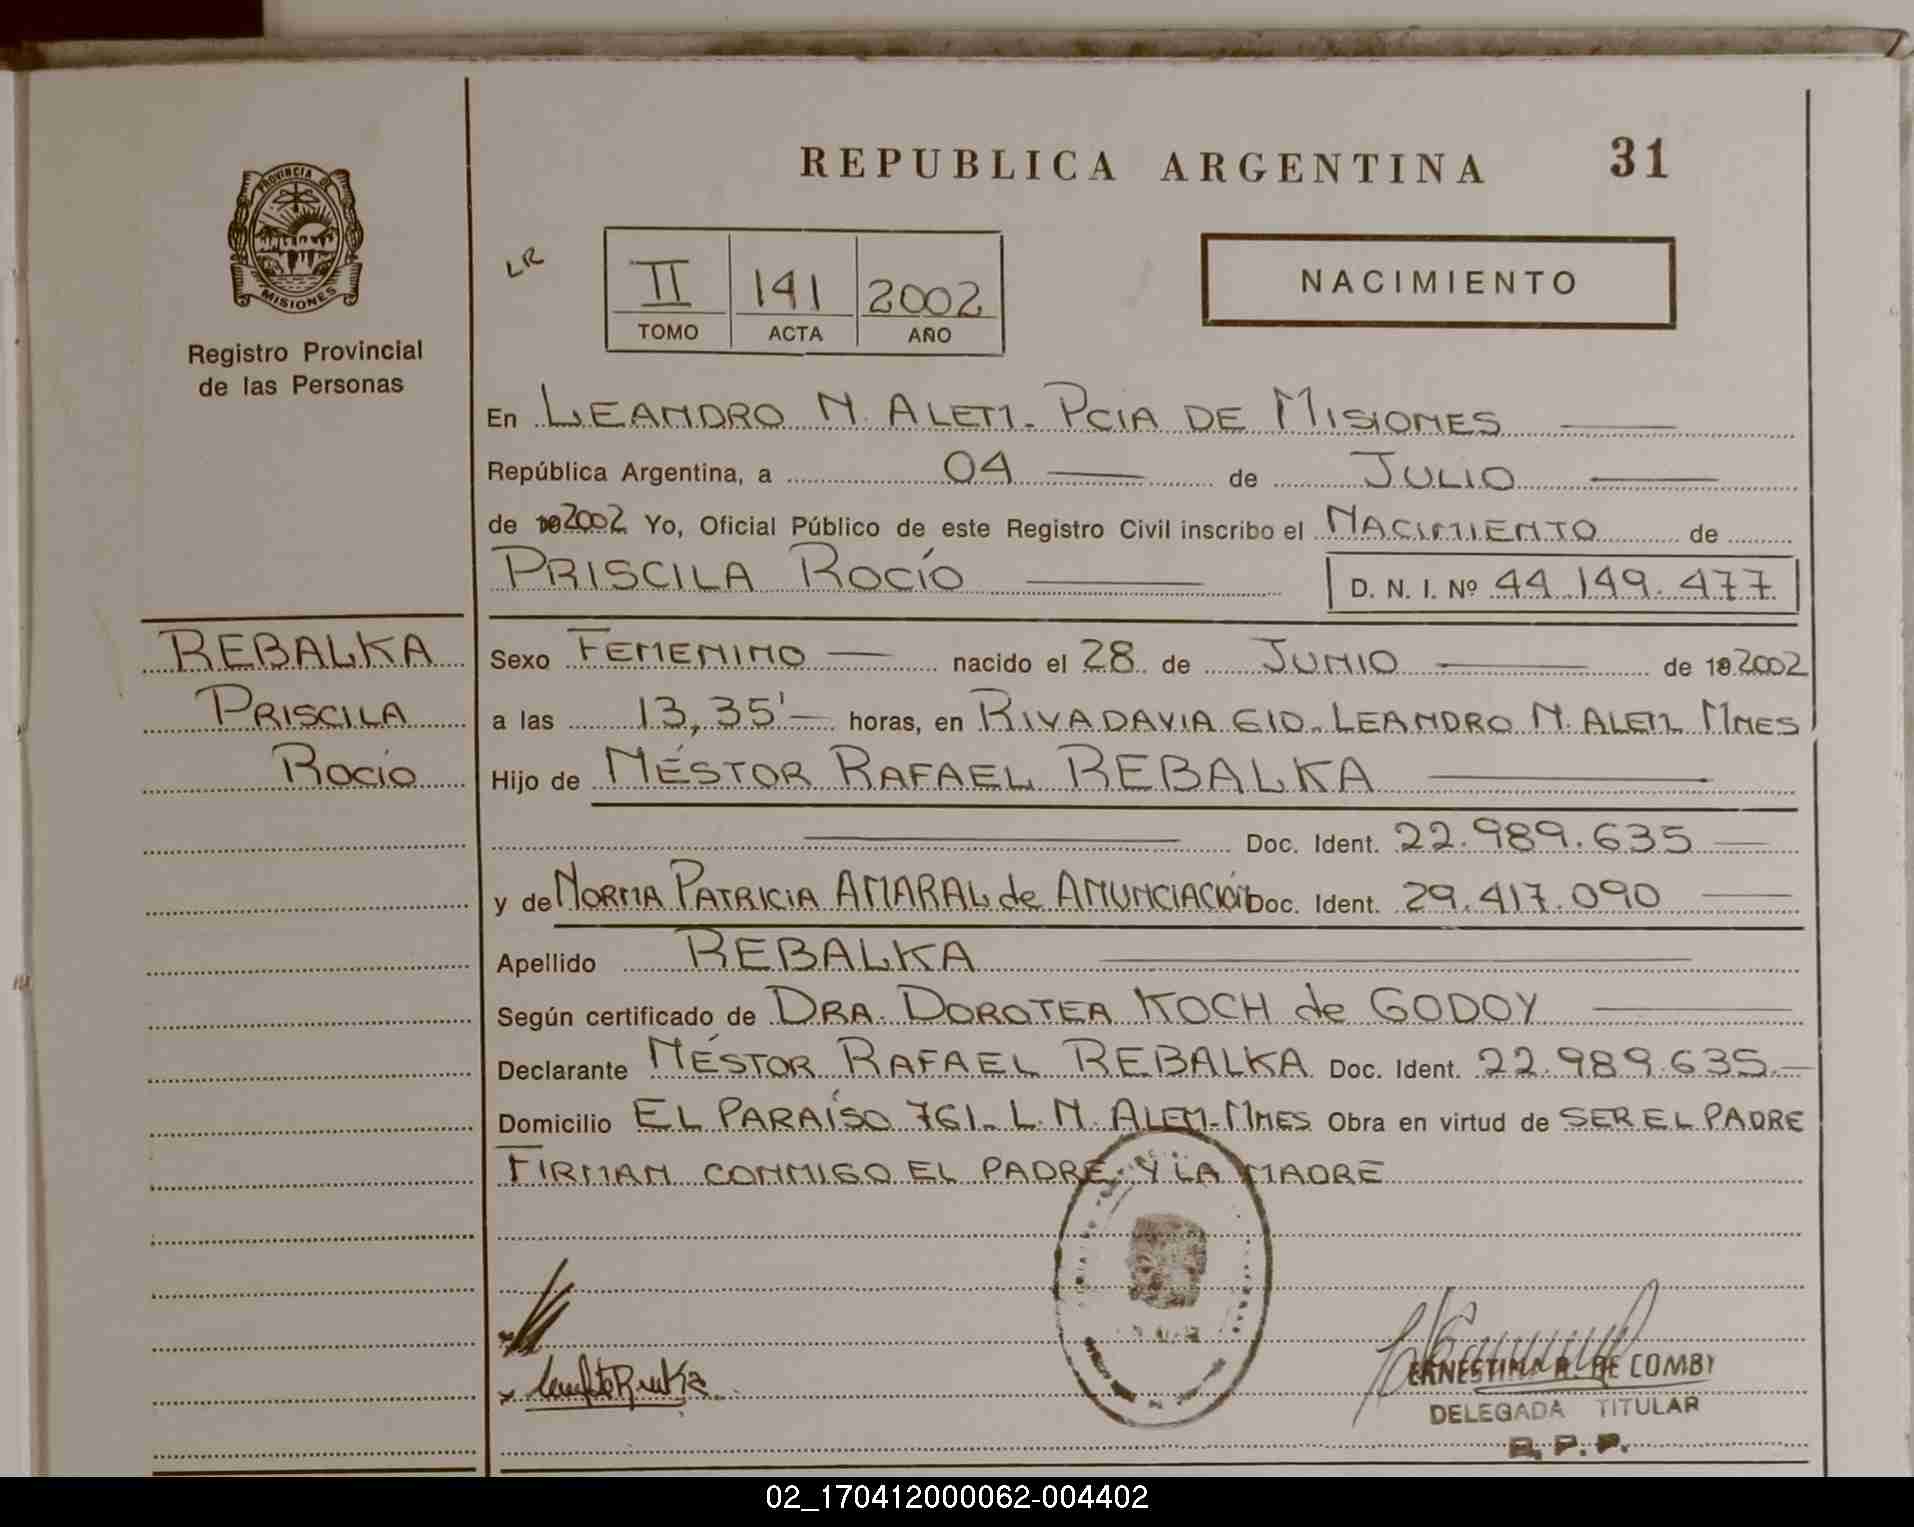 REPUBLICA ARGENTINA 31
PROVINCIA DE
MISIONES
Registro Provincial
de las Personas
LR
II 141 2002
TOMO ACTA AÑO
NACIMIENTO
En LEANDRO N. ALEM. PCIA DE MISIONES
República Argentina, a 04 de JULIO
de 2002 Yo, Oficial Público de este Registro Civil inscribo el NACIMIENTO de
PRISCILA ROCÍO D. N. I. Nº 44.149.477
REBALKA
PRISCILA
ROCÍO
Sexo FEMENINO nacido el 28 de JUNIO de 2002
a las 13,35' horas, en RIVADAVIA 610. LEANDRO N. ALEM. MNES
Hijo de NÉSTOR RAFAEL REBALKA
Doc. Ident. 22.989.635
y de NORMA PATRICIA AMARAL de ANUNCIACIÓN Doc. Ident. 29.417.090
Apellido REBALKA
Según certificado de DRA. DOROTEA KOCH de GODOY
Declarante NÉSTOR RAFAEL REBALKA Doc. Ident. 22.989.635.-
Domicilio EL PARAÍSO 761. L. N. ALEM-MNES Obra en virtud de SER EL PADRE
FIRMAN CONMIGO EL PADRE Y LA MADRE
ERNESTINA R. DE COMBY
DELEGADA TITULAR
R. P. P.
02_170412000062-004402